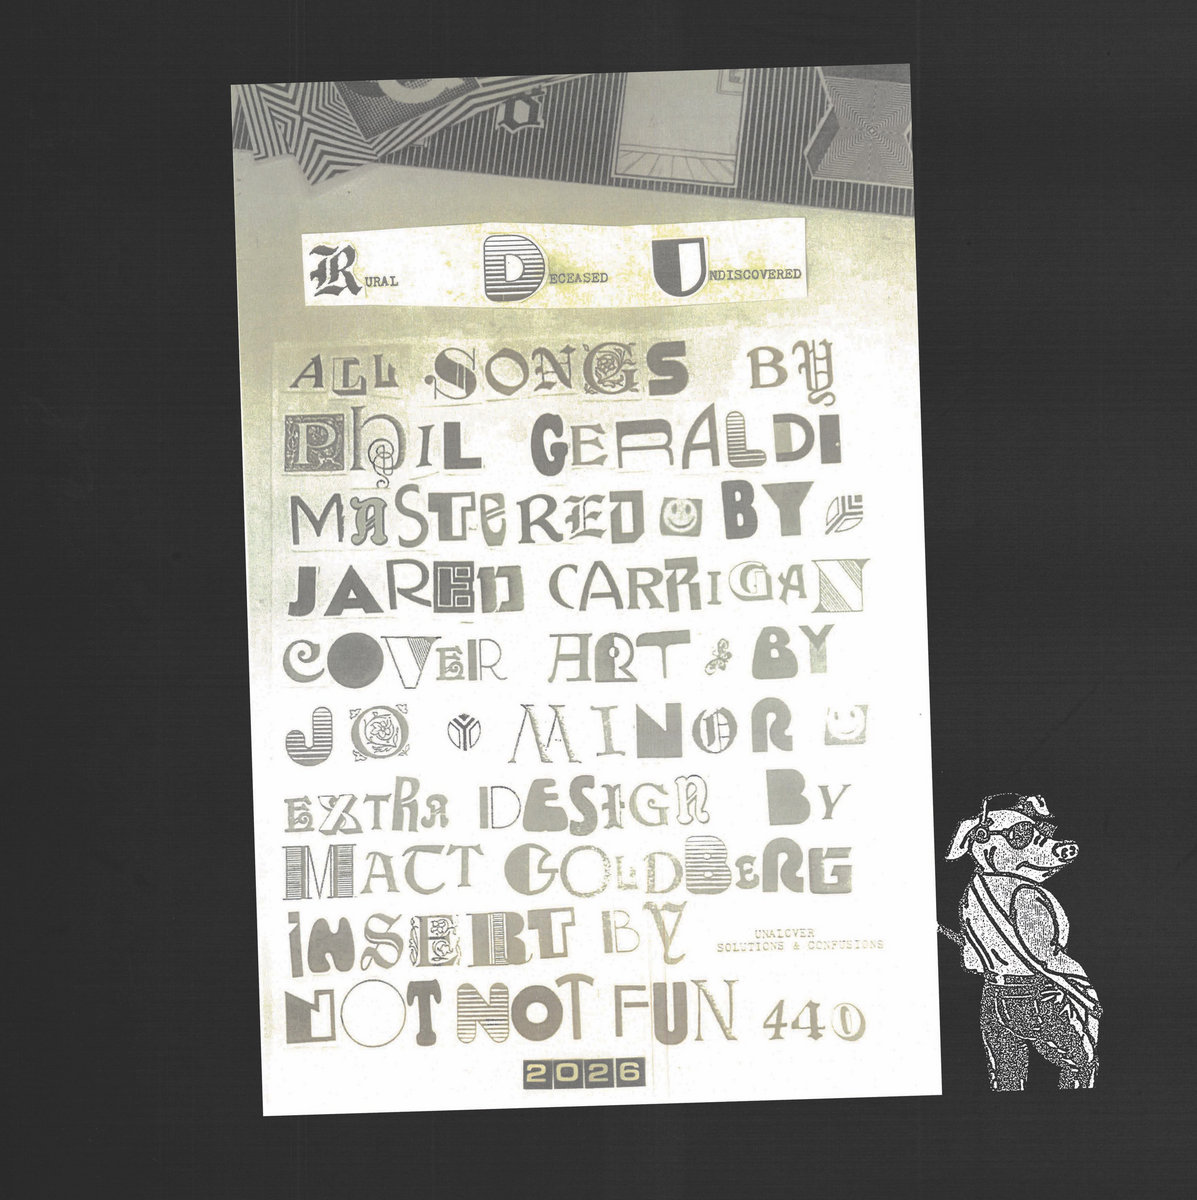 Rural Deceased Undiscovered
ALL SONGS BY
PhIL GERALDI
MASTERED BY
JARED CARRIGAN
COVER ART BY
JO MINOR
EXTRA DESIGN BY
MATT GOLDBERG
INSERT BY
UNALOVER
SOLUTIONS & CONFUSIONS
NOT NOT FUN 440
2026